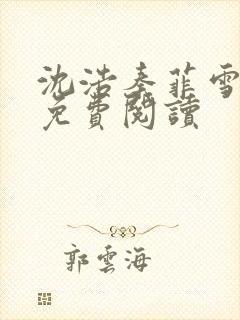 沈浩秦菲雪
免費閱讀
郭雲海